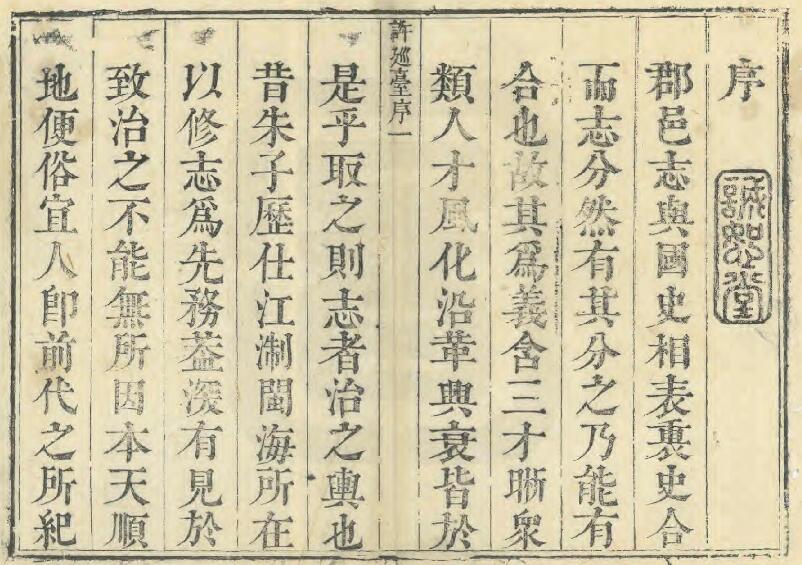 序
誠恕堂
郡邑志與國史相表裏史合
而志分然有其分之乃能有
合也故其爲義含三才晰衆
類人才風化沿革興衰皆於
許巡臺序一
是乎取之則志者治之輿也
昔朱子歷仕江淛閩海所在
以修志爲先務葢深有見於
致治之不能無所因本天順
地便俗宜人卽前代之所紀